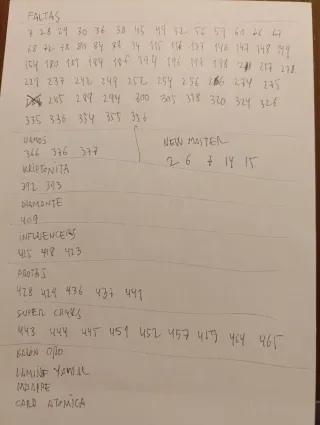 FALTAS
7 28 29 30 36 38 45 49 52 56 59 60 66 67
68 72 78 80 84 88 94 115 116 137 146 147 148 149
154 180 181 184 186 194 196 197 198 217 218
229 237 242 249 252 254 256 274 275
285 289 294 300 305 318 320 324 328
335 336 354 355 356
VAMOS
366 376 377
NEW MASTER
2 6 7 14 15
KRIPTONITA
392 393
DIAMANTE
409
INFLUENCERS
415 418 423
PROTAS
428 429 436 437 441
SUPER CRAKS
443 444 445 451 452 457 459 464 465
BALÓN ORO
LAMINE YAMAL
MBAPPE
CARD ATOMICA